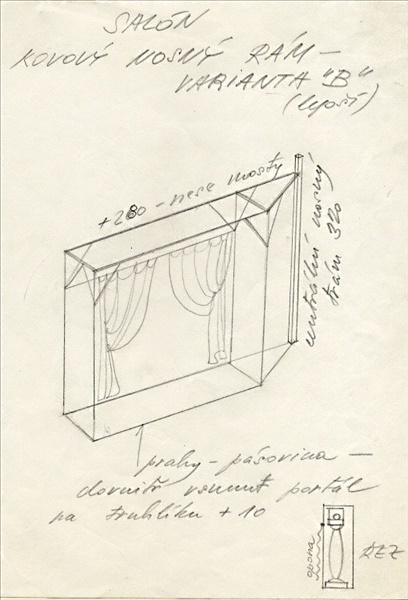 SALÓN
KOVOVÝ NOSNÝ RÁM –
VARIANTA "B"
(lepší)
+280 – nese mosty
centrální nosný
trám 320
prahy – pásovina –
dovnitř vsunut portál
na truhlíku +10
opona
ŘEZ